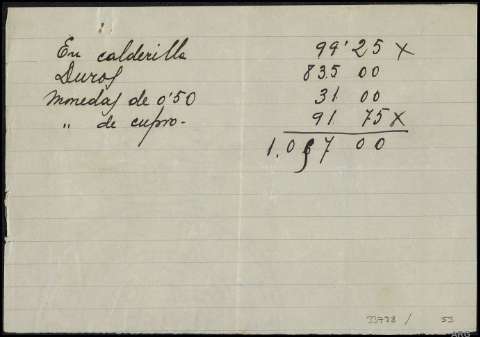 En calderilla 99'25 X
Duros 835 00
Monedas de 0'50 31 00
" de cupro- 91 75 X
1.057 00
53